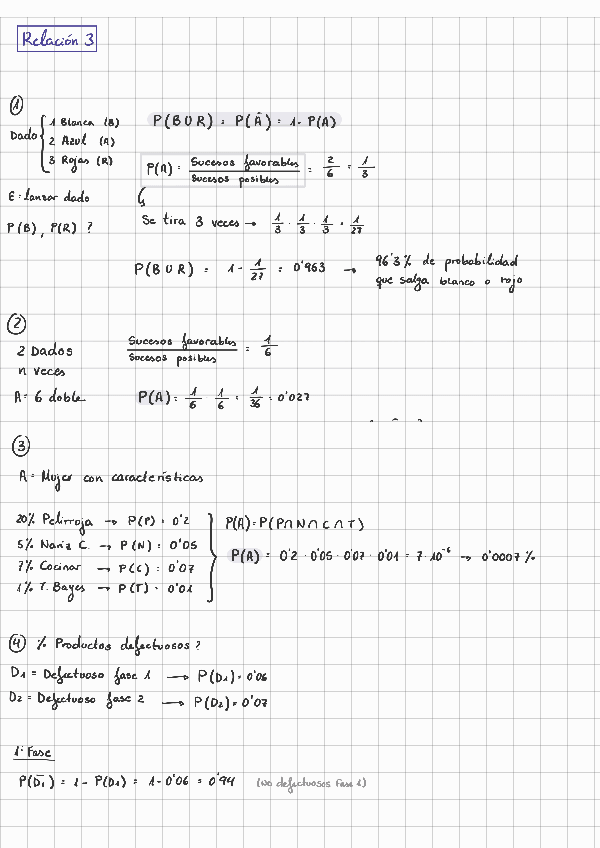 Relación 3
①
Dado { 1 Blanca (B)
2 Azul (A)
3 Rojas (R)
P(B∪R) = P(Ā) = 1- P(A)
P(A) = Sucesos favorables / Sucesos posibles = 2/6 = 1/3
E = lanzar dado
P(B), P(R) ?
Se tira 3 veces → 1/3 · 1/3 · 1/3 = 1/27
P(B∪R) = 1 - 1/27 = 0'963 → 96'3% de probabilidad
que salga blanco o rojo
②
2 Dados
n veces
A = 6 doble
Sucesos favorables / Sucesos posibles = 1/6
P(A) = 1/6 · 1/6 = 1/36 = 0'027
③
A = Mujer con características
20% Pelirroja → P(P) = 0'2
5% Nariz C. → P(N) = 0'05
7% Cocinar → P(C) = 0'07
1% T. Bayes → P(T) = 0'01
P(A) = P(P∩N∩C∩T)
P(A) = 0'2 · 0'05 · 0'07 · 0'01 = 7·10⁻⁶ → 0'0007 %
④ % Productos defectuosos ?
D1 = Defectuoso fase 1 → P(D1) = 0'06
D2 = Defectuoso fase 2 → P(D2) = 0'07
1ª Fase
P(D̄1) = 1 - P(D1) = 1 - 0'06 = 0'94 (No defectuosos Fase 1)